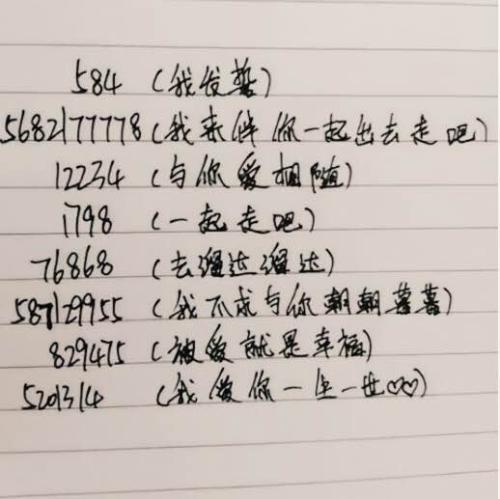 584 (我发誓)
5682177778(我来伴你一起出去走吧)
12234 (与你爱相随)
1798 (一起走吧)
76868 (去溜达溜达)
587129955 (我不求与你朝朝暮暮)
829475 (被爱就是幸福)
5201314 (我爱你一生一世♡♡)